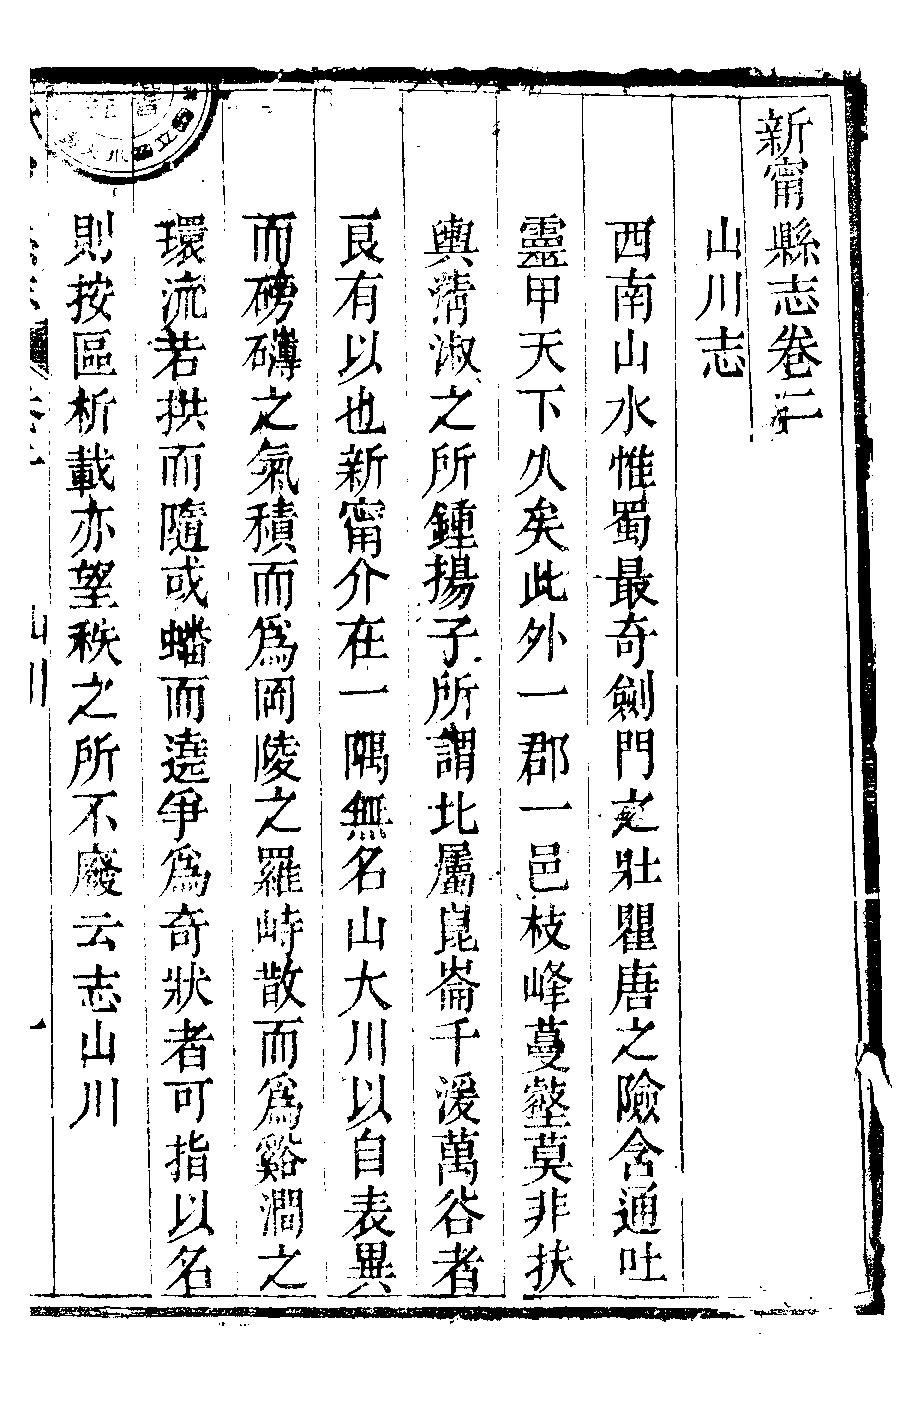 新甯縣志卷二
山川志
西南山水惟蜀最奇劍門之壯瞿唐之險含通吐
靈甲天下久矣此外一郡一邑枝峰蔓壑莫非扶
輿淸淑之所鍾揚子所謂北屬崑崙千湲萬谷者
良有以也新甯介在一隅無名山大川以自表異
而磅礴之氣積而爲岡陵之羅峙散而爲谿澗之
環流若拱而隨或蟠而遶爭爲奇狀者可指以名
則按區析載亦望秩之所不廢云志山川
山川
一